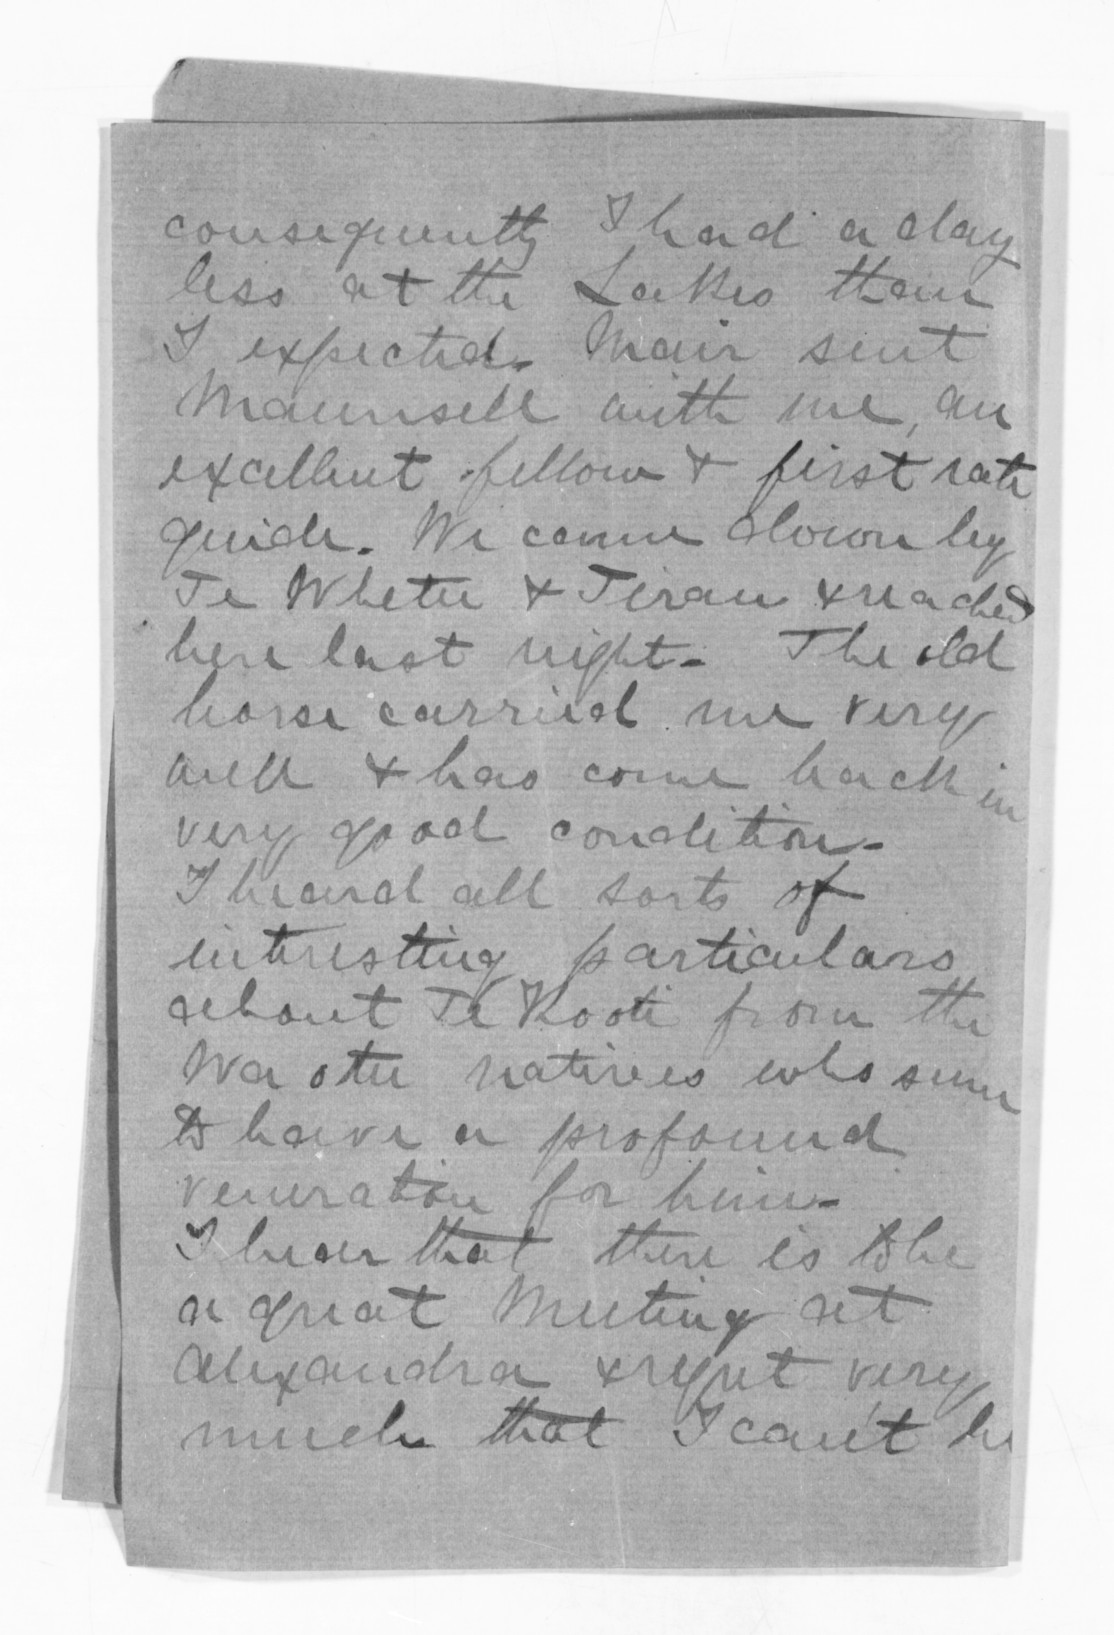 consequently I had a day
less at the Lakes than
I expected. Mair sent
Maunsell with me, an
excellent fellow & first rate
guide. We came down by
Te Whetu & Tirau & reached
here last night. The old
horse carried me very
well & has come back in
very good condition.
I heard all sorts of
interesting particulars
about Te Kooti from the
Waotu natives who seem
to have a profound
veneration for him.
I hear that there is to be
a great Meeting at
Alexandra & regret very
much that I can't be